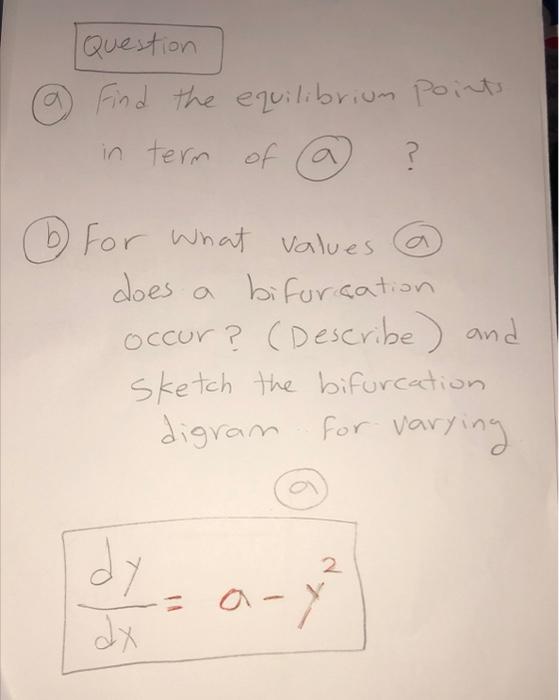 Question
(a) Find the equilibrium points
in term of (a) ?
(b) For what values (a)
does a bifurcation
occur? (Describe) and
sketch the bifurcation
digram for varying
(a)
dy/dx = a - y²